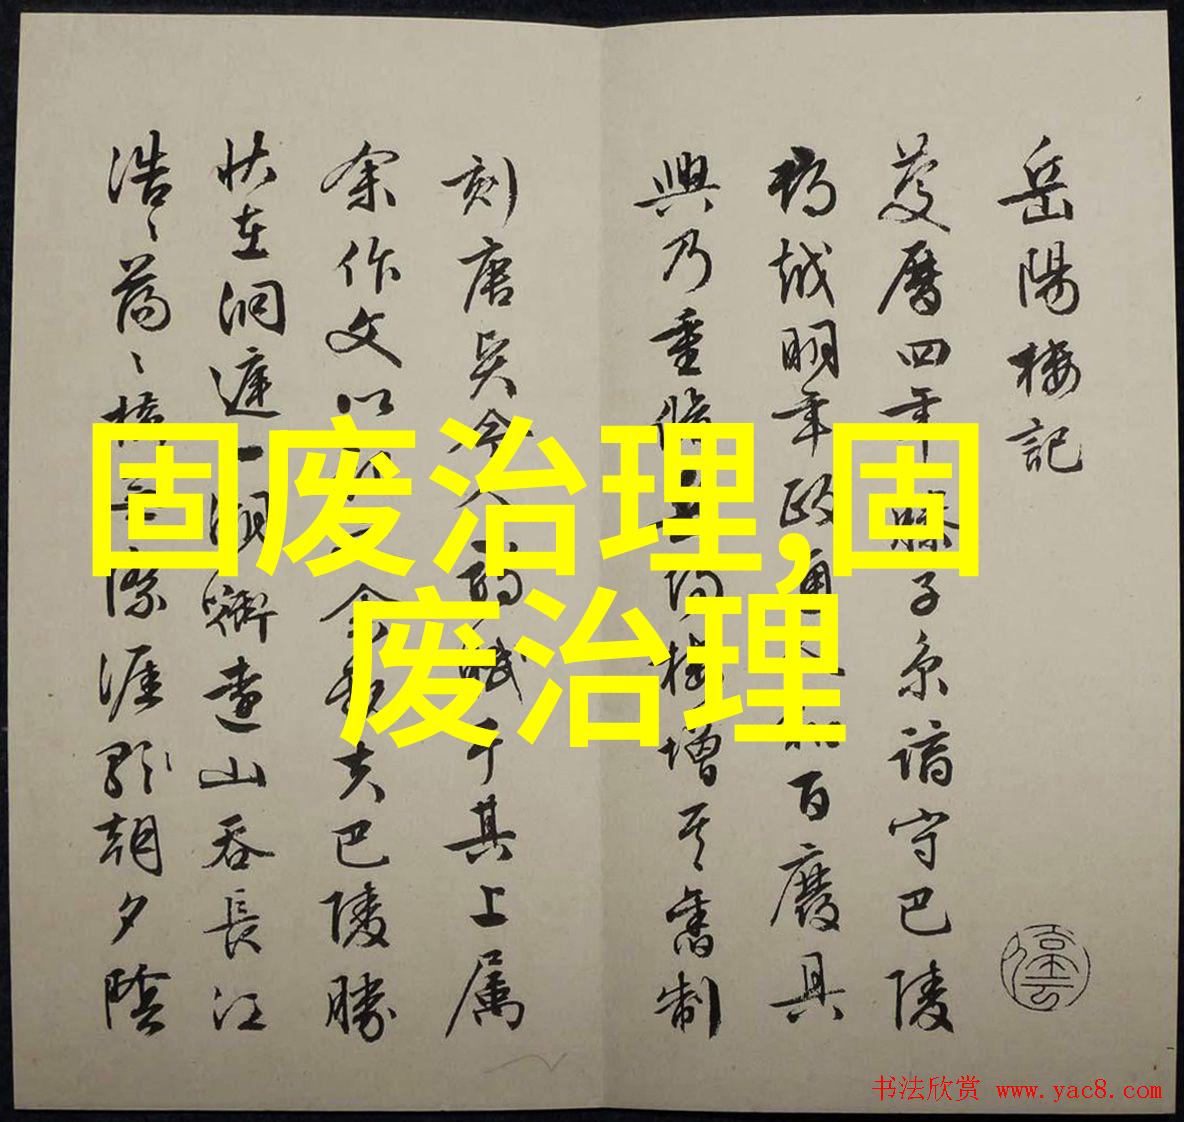 岳陽樓記
慶曆四年滕子京謫守巴陵
郡越明年政通人和百廢具
興乃重脩岳陽樓增其舊制
刻唐賢今人詩賦于其上属
余作文以記之余觀夫巴陵勝
状在洞庭一湖銜遠山吞長江
浩〻蕩〻橫無際涯朝夕陰
固废治理,固
废治理
书法欣赏 www.yac8.com